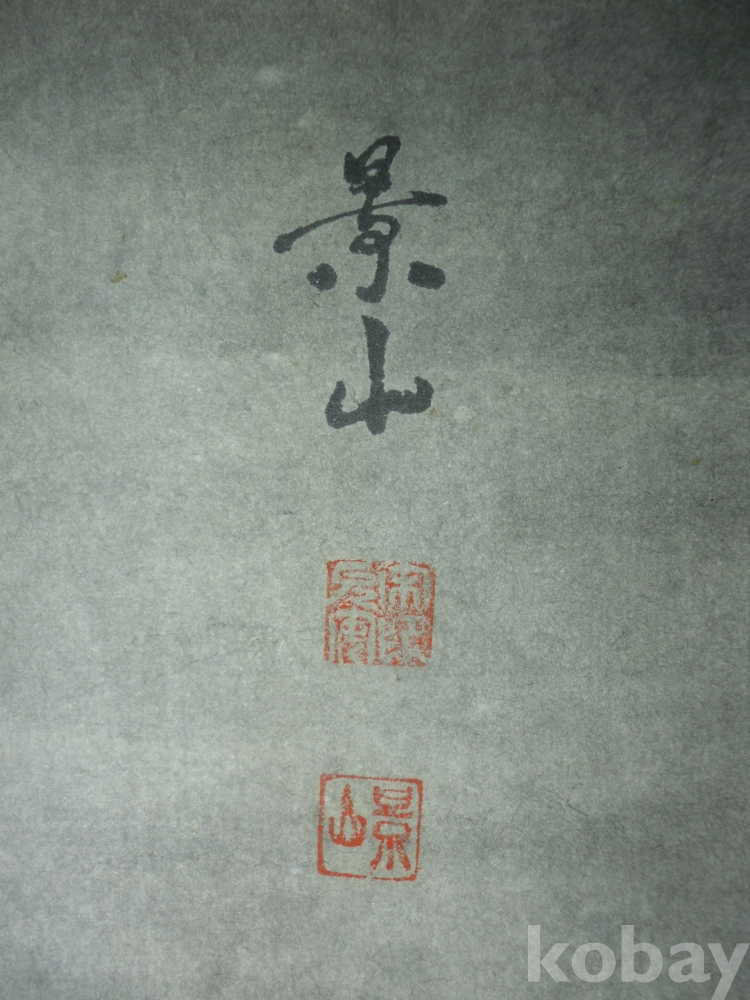 景山
景山
kobay